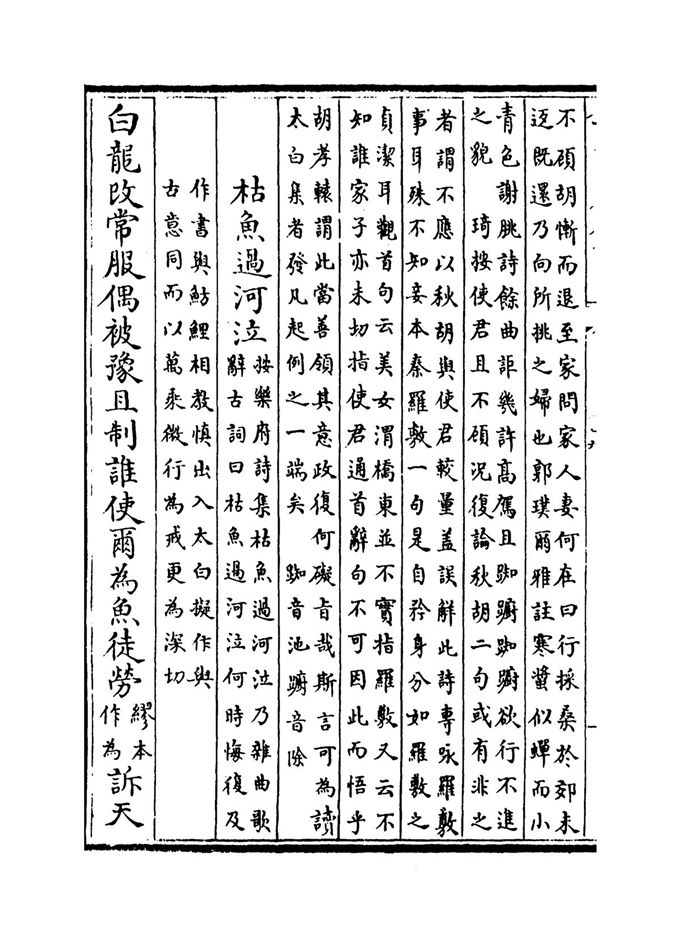 不顧胡慚而退至家問家人妻何在曰行採桑於郊未
返既還乃向所挑之婦也郭璞爾雅註寒螿似蟬而小
青色謝朓詩餘曲詎幾許高駕且踟躕踟躕欲行不進
之貌　琦按使君且不顧況復論秋胡二句或有非之
者謂不應以秋胡與使君較量盖誤解此詩專咏羅敷
事耳殊不知妾本秦羅敷一句是自矜身分如羅敷之
貞潔耳觀首句云美女渭橋東並不實指羅敷又云不
知誰家子亦未切指使君通首辭句不可因此而悟乎
胡孝轅謂此當善領其意政復何礙旨哉斯言可為讀
太白集者發凡起例之一端矣　踟音池躕音除
枯魚過河泣
按樂府詩集枯魚過河泣乃雜曲歌
辭古詞曰枯魚過河泣何時悔復及
作書與魴鯉相教慎出入太白擬作與
古意同而以萬乘微行為戒更為深切
白龍改常服偶被豫且制誰使爾為魚徒勞
繆本
作為
訴天